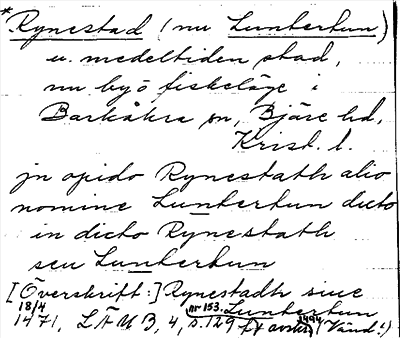 * Rynestad (nu Luntertun)
u. medeltiden stad,
nu by o fiskeläge i
Barkåkra sn, Bjäre hd,
Krist. l.
jn opido Rynestath alio
nomine Luntertun dicto
in dicto Rynestath
seu Luntertun
[Överskrift:] Rynestadh siue
Luntertun
18/4 1471, LÄUB, 4, nr 153. s. 129 (Vänd!)